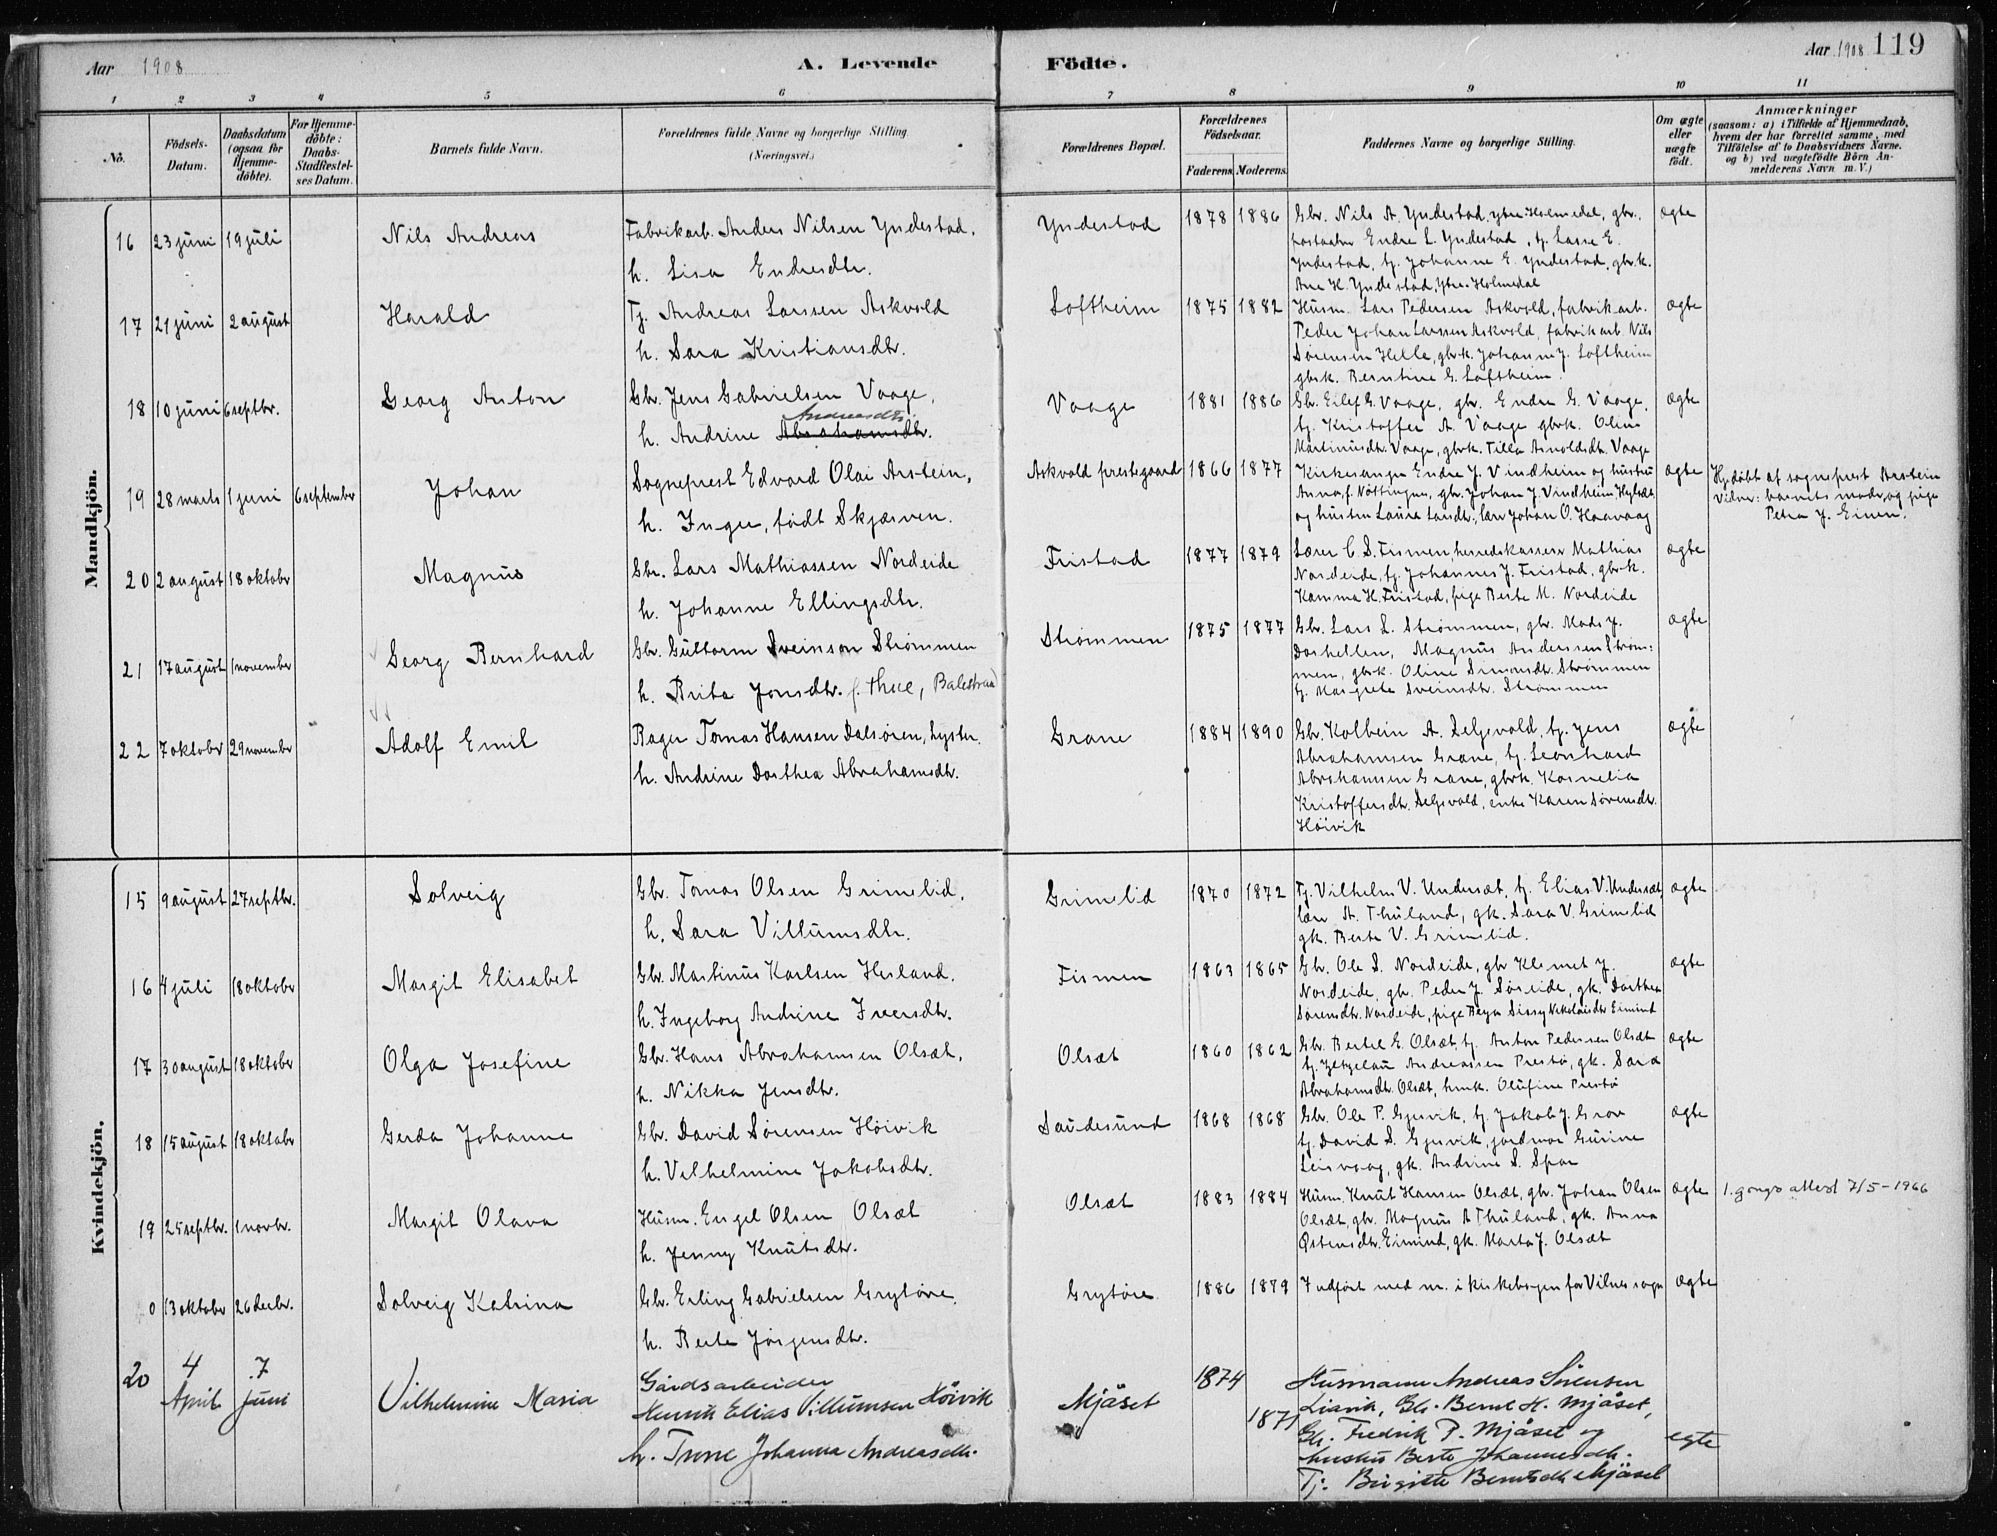 Aar 1908
A. Levende
Födte.
Aar 1908 119
1 2 3 4 5 6 7 8 9 10 11
No.
Födsels-
Datum.
Daabsdatum
(ogsaa for
Hjemme-
döbte).
For Hjemme-
döbte:
Daabs-
Stadfæstel-
ses Datum.
Barnets fulde Navn.
Forældrenes fulde Navne og borgerlige Stilling.
(Næringsvei.)
Forældrenes Bopæl.
Forældrenes
Födselsaar.
Faderens. Moderens.
Faddernes Navne og borgerlige Stilling.
Om ægte
eller
uægte
födt.
Anmærkninger
(saasom: a) i Tilfælde af Hjemmedaab,
hvem der har forrettet samme, med
Tilföielse af to Daabsvidners Navne.
og b) ved uægtefödte Börn An-
melderens Navn m. V.)
Mandkjön.
16 23 juni 19 juli Nils Andreas Fabrikarb. Anders Nilsen Yndestad.
h. Lisa Endresdtr.
Yndestad 1878 1886 Gbr. Nils A. Yndestad, ytre Holmedal, gbr.,
Endre L. Yndestad, tj. Lasse E.
Yndestad, tj. Johanne E. Yndestad, gbr.k.
Ane H. Yndestad, ytre Holmedal
ægte
17 21 juni 2 august Harald Tj. Andreas Larsen Askvold
h. Sara Kristiansdtr.
Loftheim 1875 1882 Husm. Lars Pedersen Askvold, fabrikarb.
Peder Johan Larssen Askvold, fabrikarb. Nils
Sørensen Helle, gbrk. Johanne J. Loftheim
gbrk. Berntine G. Loftheim.
ægte
18 10 juni 6 septbr. Georg Anton Gbr. Jens Gabrielsen Vaage,
Andreasdtr.
h. Andrine Abrahamsdtr.
Vaage 1881 1886 Gbr. Eilef G. Vaage, gbr. Endre G. Vaage,
tj. Kristoffer A. Vaage gbrk. Oline
Martinusdtr. Vaage, gbrk. Tilla Arnoldsdtr. Vaage
ægte
19 28 marts 1 juni 6 september Johan Sogneprest Edvard Olai Arstein,
h. Inga, født Skjærven.
Askvold prestegaard 1866 1877 Kirkesanger Endre J. Vindheim og hustru
Anna, f. Nøttingnes, gbr. Johan J. Vindheim
og hustru Laura Larsdtr., lærer Johan O. Haavaag
ægte Hj.døbt af sogneprest Arstein
Vidner: barnets moder og pige
Petra J. Einen.
20 2 august 18 oktobr Magnus Gbr. Lars Mathiassen Nordeide
h. Johanne Ellingsdtr.
Fristad 1877 1879 Lærer C. S. Fismen, herredskasserer Mathias
Nordeide, tj. Johannes J. Fristad, gbr.k.
Kamma H. Fristad, pige Berte M. Nordeide
ægte
21 17 august 1 november Georg Bernhard Gbr. Guttorm Sveinson Strømmen
h. Brita Jonsdtr. f. Thue, Balestrand
Strømmen 1875 1877 Gbr. Lars L. Strømmen, gbr. Mads J.
Magnus Anderssen Strøm-
men, gbrk. Oline Simonsdtr. Strømmen
tj. Margreta Sveinsdtr. Strømmen
ægte
22 7 oktober 29 november Adolf Emil Bager Tomas Hansen Dalsøren, Lyster.
h. Andrine Dorthea Abrahamsdtr.
Grane 1884 1890 Gbr. Kolbein A. Selgevold, tj. Jens
Abrahamsen Grane, tj. Leonhard
Abrahamsen Grane, gbrk. Kornelia
Kristoffersdtr. Selgevold, enke Karen Sørensdtr.
Høivik
ægte
Kvindekjön.
15 9 august 27 septbr. Solveig Gbr. Tomas Olsen Grimelid.
h. Sara Villumsdtr.
Grimelid 1870 1872 Tj. Vilhelm V. Undersæt, tj. Elias V. Undersæt,
lærer A. Thuland, gk. Sara V. Grimelid
gk. Berte V. Grimelid.
ægte
16 4 juli 18 oktober Margit Elisabet Gbr. Martinus Karlsen Hesland.
h. Ingeborg Andrine Iversdtr.
Fismen 1863 1865 Gbr. Ole S. Nordeide, gbr Klemet J.
Nordeide, gbr. Peder J. Søreide, gk. Dorthea
Sørensdtr. Nordeide, pige Sissy Nikolaisdtr Eimind
ægte
17 30 august 18 oktober Olga Josefine Gbr. Hans Abrahamsen Olsæt.
h. Nikka Jensdtr.
Olsæt 1860 1862 Gbr. Bertel E. Olsæt, tj. Anton Pedersen Olsæt
tj. Andreassen Prestø, gk. Sara
Abrahamsdtr. Olsæt, hmk. Olufine Prestø
ægte
18 15 august 18 oktobr Gerda Johanne Gbr. David Sørensen Høivik
h. Vilhelmine Jakobsdtr.
Saudesund 1868 1868 Gbr. Ole P. Gjesvik, tj. Jakob J. Grov
tj. David S. Gjesvik, jordmor Gurine
Leirvaag, gk. Andrine S.
ægte
19 25 septbr. 1 novbr. Margit Olava Husm. Engel Olsen Olsæt
h. Jenny Knutsdtr.
Olsæt 1883 1884 Husm. Knut Hansen Olsæt, gbr. Johan Olsen
Olsæt, gbr. Magnus A Thuland, gk. Anna
Østensdtr. Eimind, gk. Marta J. Olsæt
ægte 1. gangs attest 7/5-1966
0 13 oktober 26 decbr. Solveig Katrina Gbr. Erling Gabrielsen Grytøre.
h. Berte Jørgensdtr.
Grytøre 1886 1879 Indført med nr. i kirkebogen for Vilnes sogn ægte
20 4 April 7 Juni Vilhelmine Maria Gårdsarbeider
Henrik Elias Villumsen Höivik
h. Trine Johanna Andreasdtr.
Mjåset 1874
1871
Husmann Andreas Sörensen
Gbr. Bernt H. Mjåset,
Gbr. Fredrik P. Mjåset og
hustru Berte Johannesdtr.
Tj. Birgitte Berntsdtr Mjåset
egte